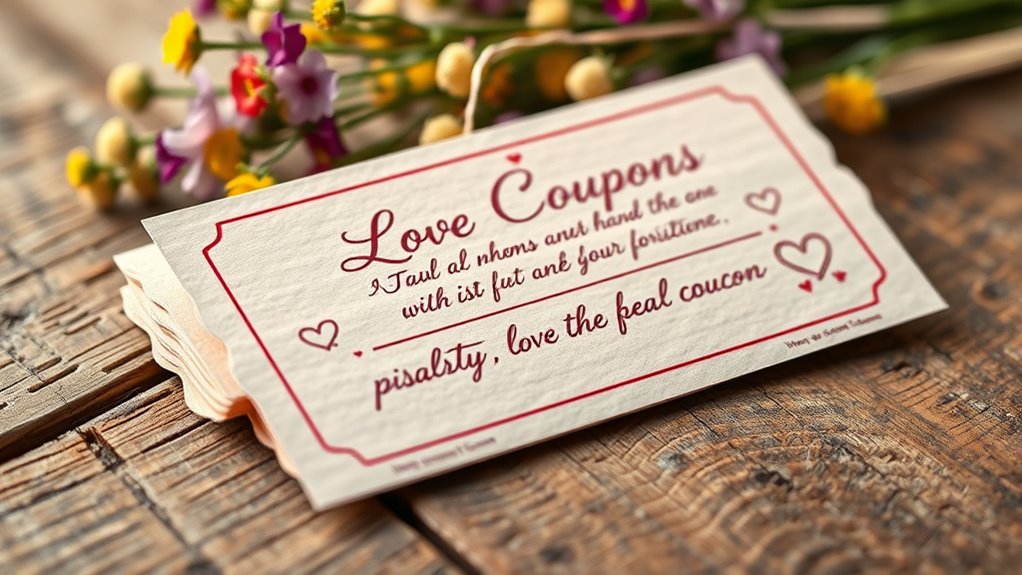 Love Coupons
Taul al nhems anut hand the one
with ist fut ank your foriitiene.
pisalrty, love the feal coucon